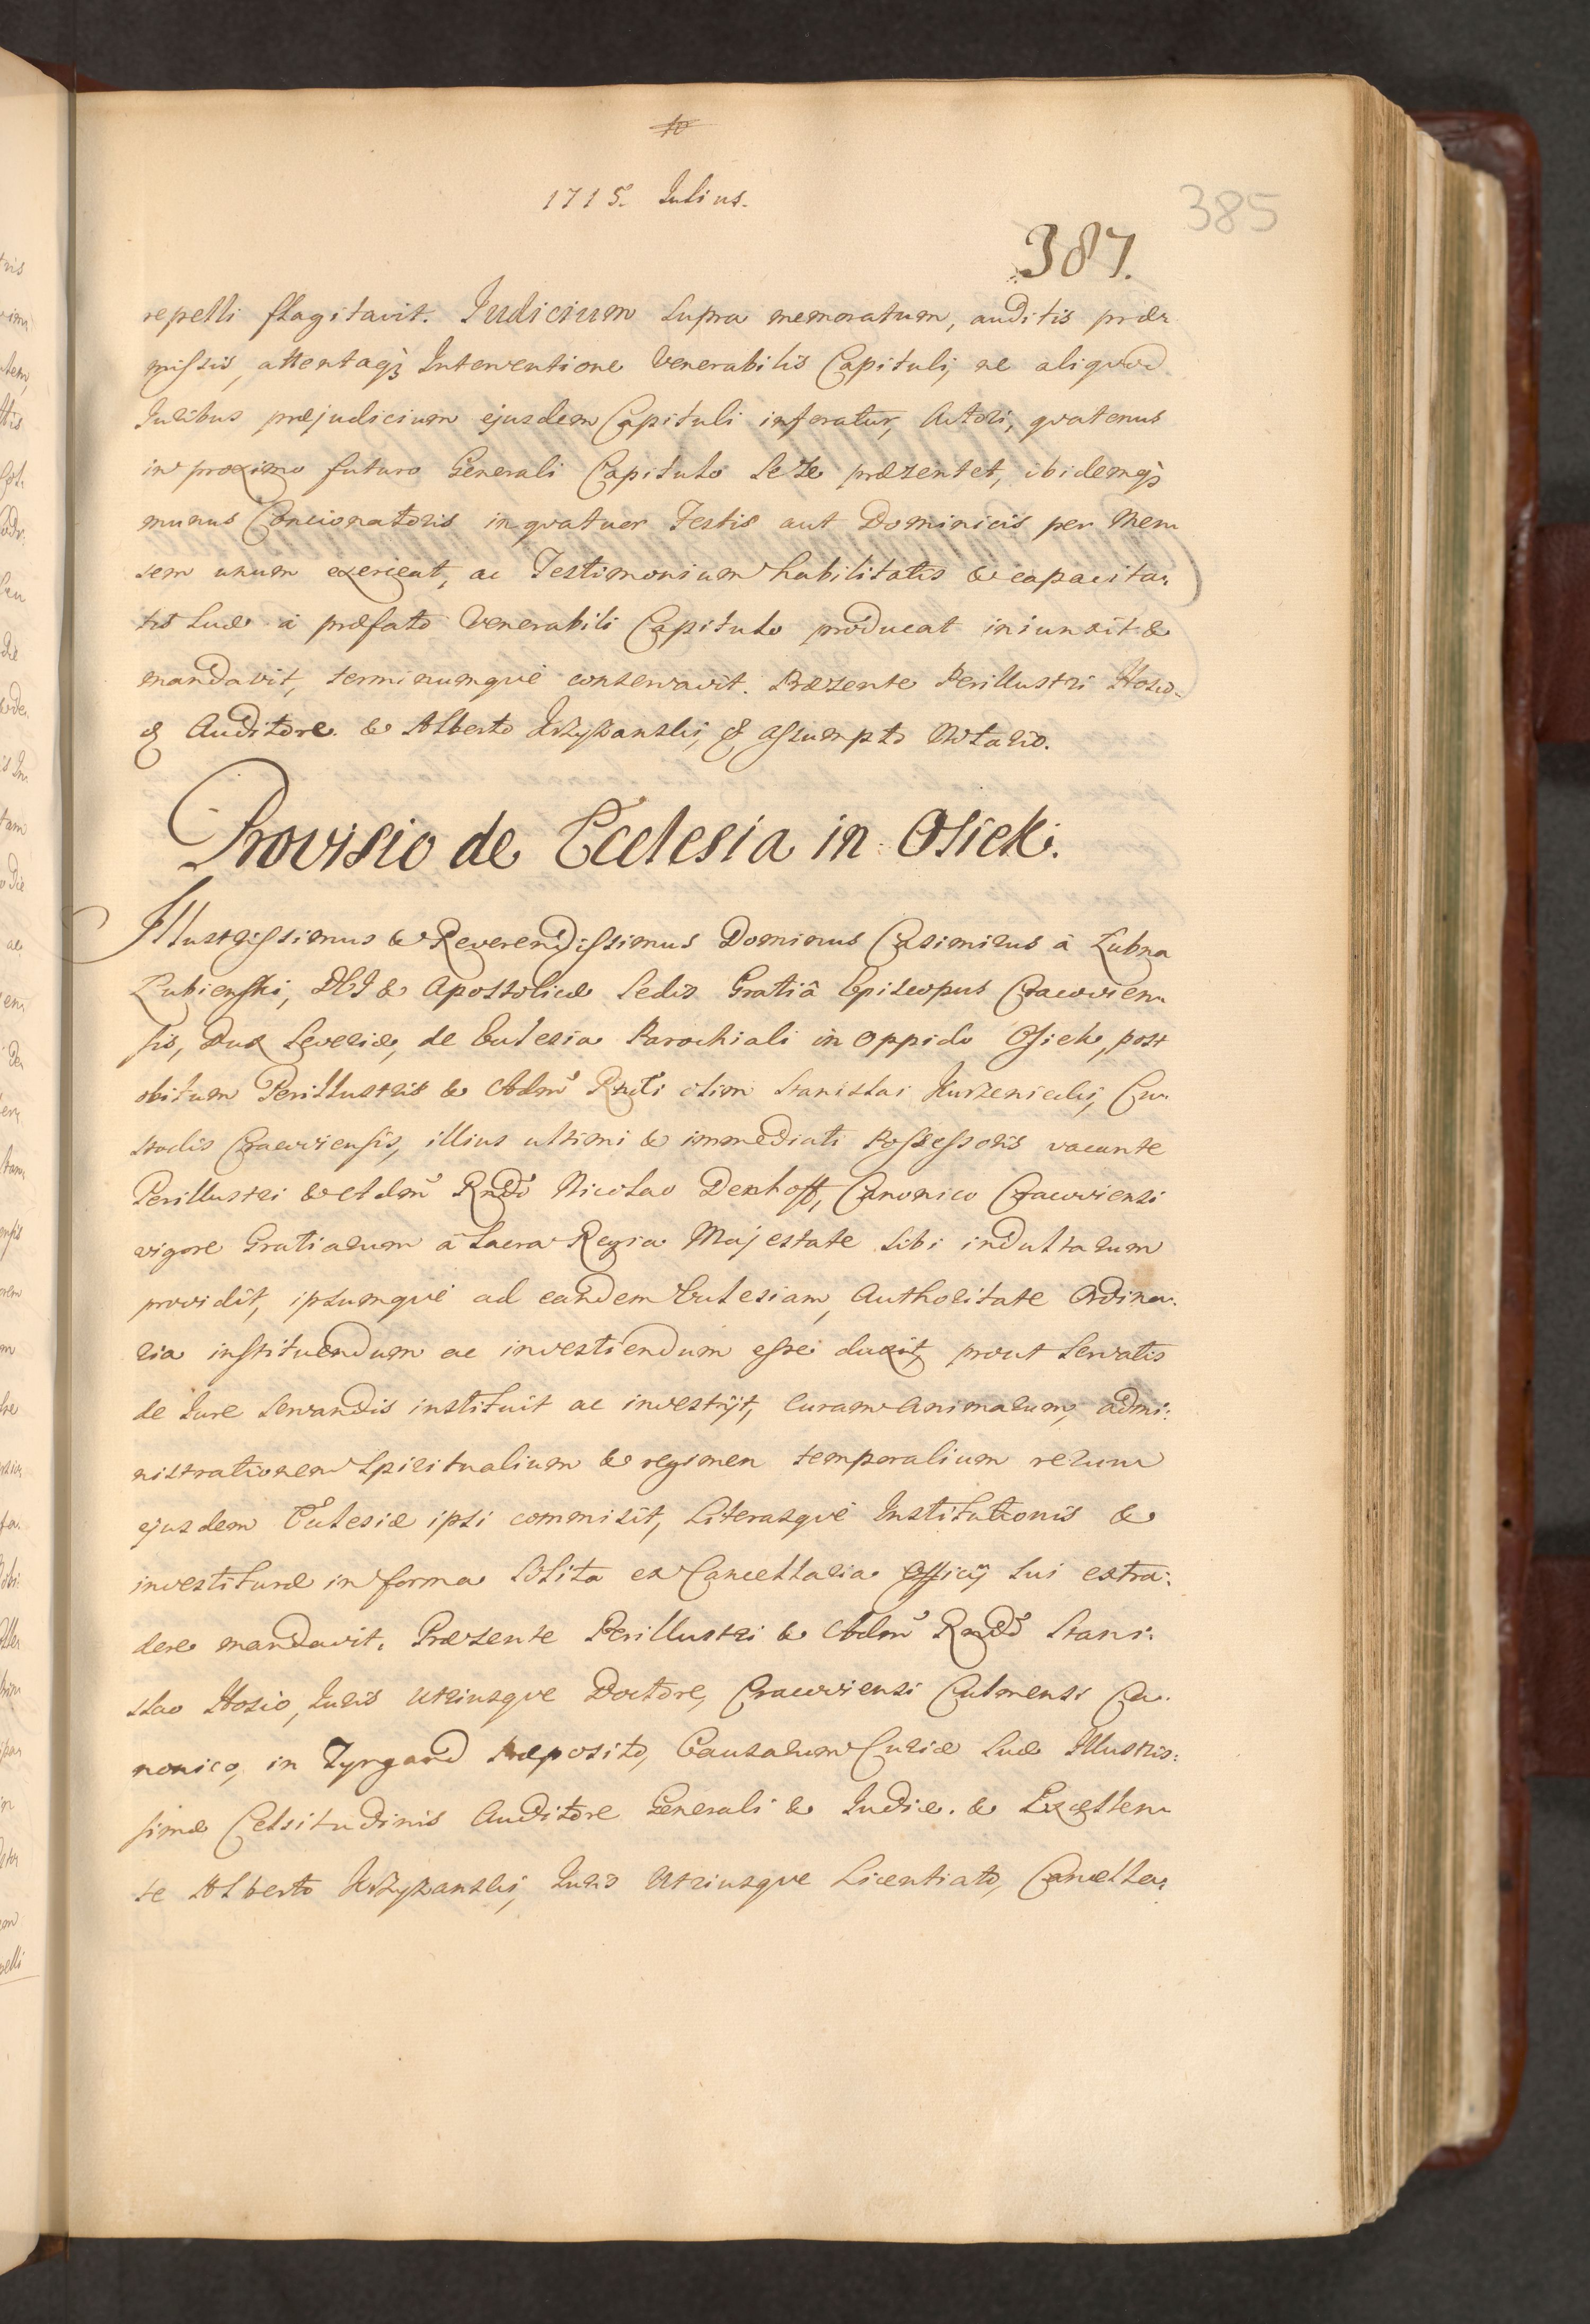 1715. Iulius.
385
387.
repelli flagitavit. Iudicium supra memoratum, auditis præ-
missis, attentaq; Interventione Venerabilis Capituli, ne aliquod
Iuribus præjudicium ejusdem Capituli inferatur, Actori, quatenus
in proximo futuro Generali Capitulo sese præsentet, ibidemq;
munus Concionatoris in quatuor Festis aut Dominicis per Men-
sem unum exerceat, ac Testimonium habilitatis & capacita-
tis suæ à præfato Venerabili Capitulo producat iniunxit &
mandavit, terminumque conservavit. Præsente Perillustri Hosio
Auditore & Alberto Krzyżanski, assumpto Notario.
Provisio de Ecclesia in Osiek.
Illustrissimus & Reverendissimus Dominus Casimirus à Łubna
Łubienski, DEI & Apostolicæ Sedis Gratiâ Episcopus Cracovien-
sis, Dux Severiæ, de Ecclesia Parochiali in Oppido Osiek, post
obitum Perillustris & Adm Rndi olim Stanislai Kurzeniecki, Cu-
stodis Cracoviensis, illius ultimi & immediati Possessoris vacante
Perillustri & Adm Rndo Nicolao Denhoff, Canonico Cracoviensi
vigore Gratiarum à Sacra Regia Majestate sibi indultarum
providit, ipsumque ad eandem Ecclesiam, Authoritate Ordina-
ria instituendum ac investiendum esse duxit, prout servatis
de Iure servandis instituit ac investijt, Curam Animarum, admi-
nistrationem Spiritualium & regimen temporalium rerum
ejusdem Ecclesiæ ipsi commisit, Literasque Institutionis &
investituræ in forma solita ex Cancellaria Officij sui extra-
dere mandavit. Præsente Perillustri & Adm Rndo Stani-
slao Hosio, Iuris Utriusque Doctore, Cracoviensi Culmensi Ca-
nonico, in Zyrgard Præposito, Causarum Curiæ suæ Illustris-
simæ Celsitudinis Auditore Generali & Iudice. & Excellen-
te Alberto Krzyżanski, Iuris Utriusque Licentiato, Cancella-